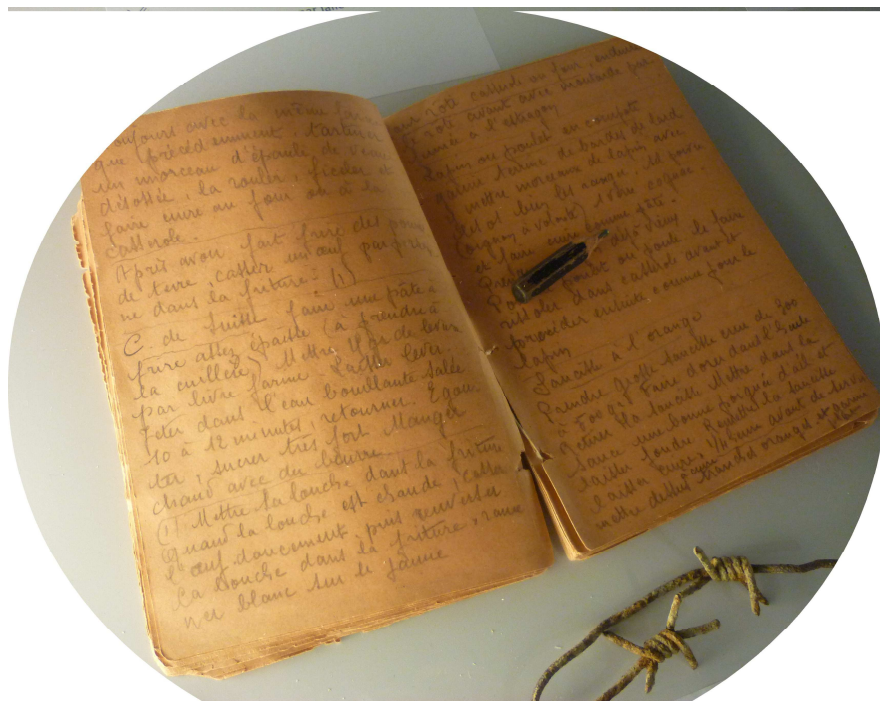 toujours avec la même
que précédemment, tartiner
un morceau d'épaule de veau
désossée, la rouler, ficeler et
faire cuire au four ou à la
casserole.
Après avoir fait frire des pommes
de terre, casser un œuf par
ne dans la friture. (1)
C de Suisse faire une pâte à
frire assez épaisse (à prendre à
la cuillère) Mettre 10 gr de levure
par livre farine. Laisser lever.
Jeter dans l'eau bouillante salée
10 à 12 minutes, retourner. Egout
ter, sucrer très fort Manger
chaud avec du beurre
(1) Mettre la louche dans la friture
quand la louche est chaude, casser
l'œuf doucement puis renverser
la louche dans la friture, rame
ner blanc sur le jaune
rôti casserole ou four,
rôti avant avec moutarde
à l'estragon
Lapin ou poulet en compote
terrine de bardes de lard
mettre morceaux de lapin avec
sel et
oignon, à volonté) 1 verre cognac.
et faire cuire comme pâté.
déjà vieux
poulet ou poule le faire
rissoler dans casserole avant et
procéder ensuite comme pour le
lapin
Saucisse à l'orange
Prendre grosse saucisse crue de 300
à 500 grs Faire dorer dans l'huile
Retirer la saucisse Mettre dans la
sauce une bonne poignée d'ail et
laisser fondre Remettre la saucisse
laisser cuire, 1/4 heure avant de servir
mettre dessus tranches oranges et